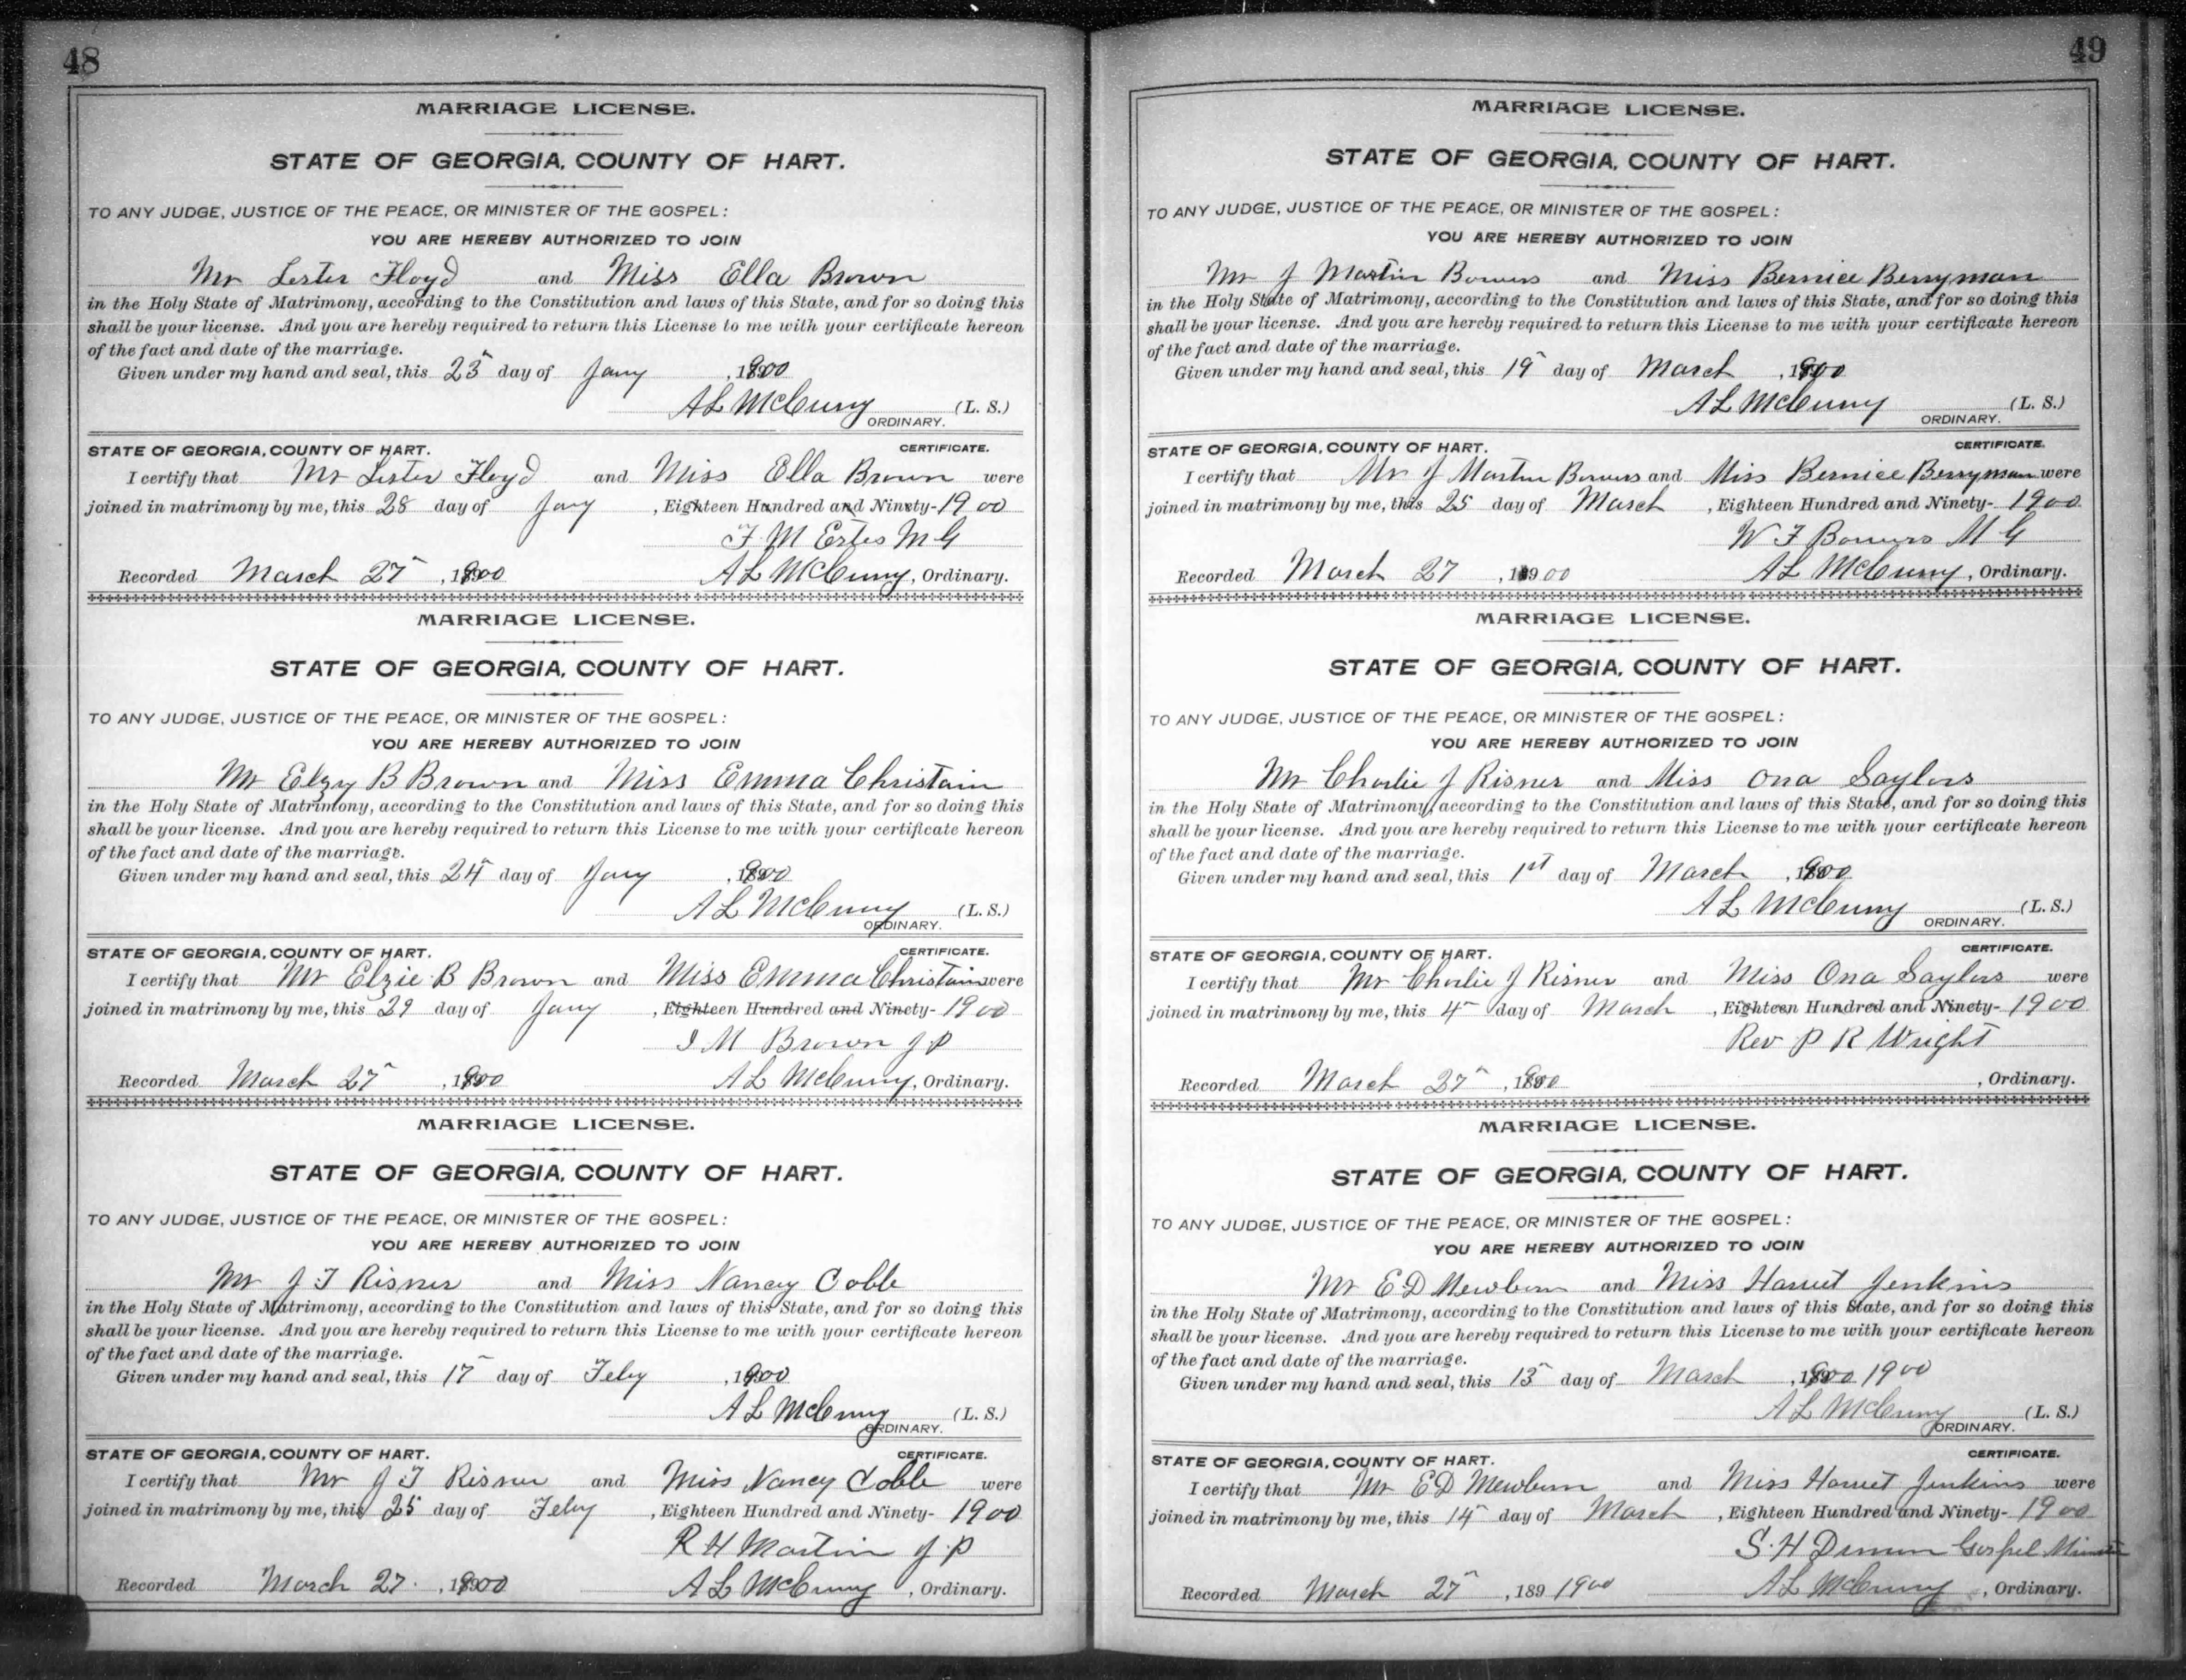 48
MARRIAGE LICENSE.
STATE OF GEORGIA, COUNTY OF HART.
TO ANY JUDGE, JUSTICE OF THE PEACE, OR MINISTER OF THE GOSPEL:
YOU ARE HEREBY AUTHORIZED TO JOIN
Mr Lester Floyd and Miss Ella Brown
in the Holy State of Matrimony, according to the Constitution and laws of this State, and for so doing this
shall be your license. And you are hereby required to return this License to me with your certificate hereon
of the fact and date of the marriage.
Given under my hand and seal, this 23 day of Jany, 1900
A L McCurry (L. S.)
ORDINARY.
STATE OF GEORGIA, COUNTY OF HART. CERTIFICATE.
I certify that Mr Lester Floyd and Miss Ella Brown were
joined in matrimony by me, this 28 day of Jany, Eighteen Hundred and Ninety- 1900
F M Estes M G
Recorded March 27, 1900 A L McCurry, Ordinary.
MARRIAGE LICENSE.
STATE OF GEORGIA, COUNTY OF HART.
TO ANY JUDGE, JUSTICE OF THE PEACE, OR MINISTER OF THE GOSPEL:
YOU ARE HEREBY AUTHORIZED TO JOIN
Mr Elzy B Brown and Miss Emma Christain
in the Holy State of Matrimony, according to the Constitution and laws of this State, and for so doing this
shall be your license. And you are hereby required to return this License to me with your certificate hereon
of the fact and date of the marriage.
Given under my hand and seal, this 24 day of Jany, 1900
A L McCurry (L. S.)
ORDINARY.
STATE OF GEORGIA, COUNTY OF HART. CERTIFICATE.
I certify that Mr Elzie B Brown and Miss Emma Christain were
joined in matrimony by me, this 29 day of Jany, Eighteen Hundred and Ninety- 1900
I M Brown J P
Recorded March 27, 1900 A L McCurry, Ordinary.
MARRIAGE LICENSE.
STATE OF GEORGIA, COUNTY OF HART.
TO ANY JUDGE, JUSTICE OF THE PEACE, OR MINISTER OF THE GOSPEL:
YOU ARE HEREBY AUTHORIZED TO JOIN
Mr J T Risner and Miss Nancy Cobb
in the Holy State of Matrimony, according to the Constitution and laws of this State, and for so doing this
shall be your license. And you are hereby required to return this License to me with your certificate hereon
of the fact and date of the marriage.
Given under my hand and seal, this 17 day of Feby, 1900
A L McCurry (L. S.)
ORDINARY.
STATE OF GEORGIA, COUNTY OF HART. CERTIFICATE.
I certify that Mr J T Risner and Miss Nancy Cobb were
joined in matrimony by me, this 25 day of Feby, Eighteen Hundred and Ninety- 1900
R H Martin J. P
Recorded March 27, 1900 A L McCurry, Ordinary.
49
MARRIAGE LICENSE.
STATE OF GEORGIA, COUNTY OF HART.
TO ANY JUDGE, JUSTICE OF THE PEACE, OR MINISTER OF THE GOSPEL:
YOU ARE HEREBY AUTHORIZED TO JOIN
Mr J Martin Bowers and Miss Bernice Berryman
in the Holy State of Matrimony, according to the Constitution and laws of this State, and for so doing this
shall be your license. And you are hereby required to return this License to me with your certificate hereon
of the fact and date of the marriage.
Given under my hand and seal, this 19 day of March, 1900
A L McCurry (L. S.)
ORDINARY.
STATE OF GEORGIA, COUNTY OF HART. CERTIFICATE.
I certify that Mr J Martin Bowers and Miss Bernice Berryman were
joined in matrimony by me, this 25 day of March, Eighteen Hundred and Ninety- 1900
W F Bowers M G
Recorded March 27, 1900 A L McCurry, Ordinary.
MARRIAGE LICENSE.
STATE OF GEORGIA, COUNTY OF HART.
TO ANY JUDGE, JUSTICE OF THE PEACE, OR MINISTER OF THE GOSPEL:
YOU ARE HEREBY AUTHORIZED TO JOIN
Mr Charlie J Risner and Miss Ona Saylors
in the Holy State of Matrimony, according to the Constitution and laws of this State, and for so doing this
shall be your license. And you are hereby required to return this License to me with your certificate hereon
of the fact and date of the marriage.
Given under my hand and seal, this 1st day of March, 1900
A L McCurry (L. S.)
ORDINARY.
STATE OF GEORGIA, COUNTY OF HART. CERTIFICATE.
I certify that Mr Charlie J Risner and Miss Ona Saylors were
joined in matrimony by me, this 4 day of March, Eighteen Hundred and Ninety- 1900
Rev P R Wright
Recorded March 27, 1900 , Ordinary.
MARRIAGE LICENSE.
STATE OF GEORGIA, COUNTY OF HART.
TO ANY JUDGE, JUSTICE OF THE PEACE, OR MINISTER OF THE GOSPEL:
YOU ARE HEREBY AUTHORIZED TO JOIN
Mr E D Mewburn and Miss Harriet Jenkins
in the Holy State of Matrimony, according to the Constitution and laws of this State, and for so doing this
shall be your license. And you are hereby required to return this License to me with your certificate hereon
of the fact and date of the marriage.
Given under my hand and seal, this 13 day of March, 1900 1900
A L McCurry (L. S.)
ORDINARY.
STATE OF GEORGIA, COUNTY OF HART. CERTIFICATE.
I certify that Mr E D Mewburn and Miss Harriet Jenkins were
joined in matrimony by me, this 14 day of March, Eighteen Hundred and Ninety- 1900
S. H Gospel Minister
Recorded March 27, 189 1900 A L McCurry, Ordinary.